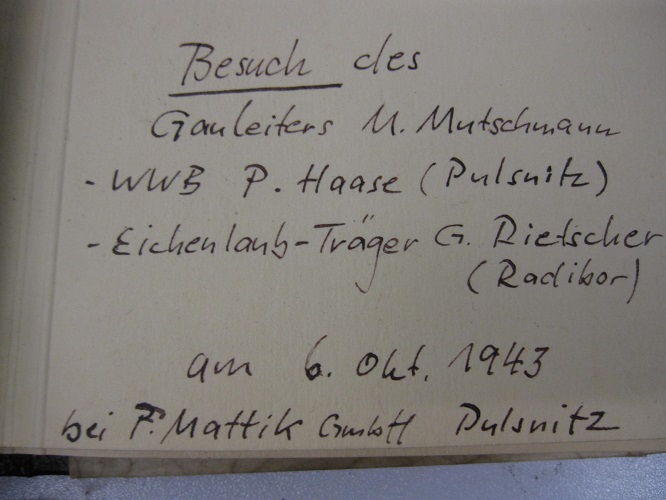 Besuch des
Gauleiters M. Mutschmann
- WWB P. Haase (Pulsnitz)
- Eichenlaub-Träger G. Rietscher
(Radibor)
am 6. Okt. 1943
bei F. Mattik GmbH Pulsnitz